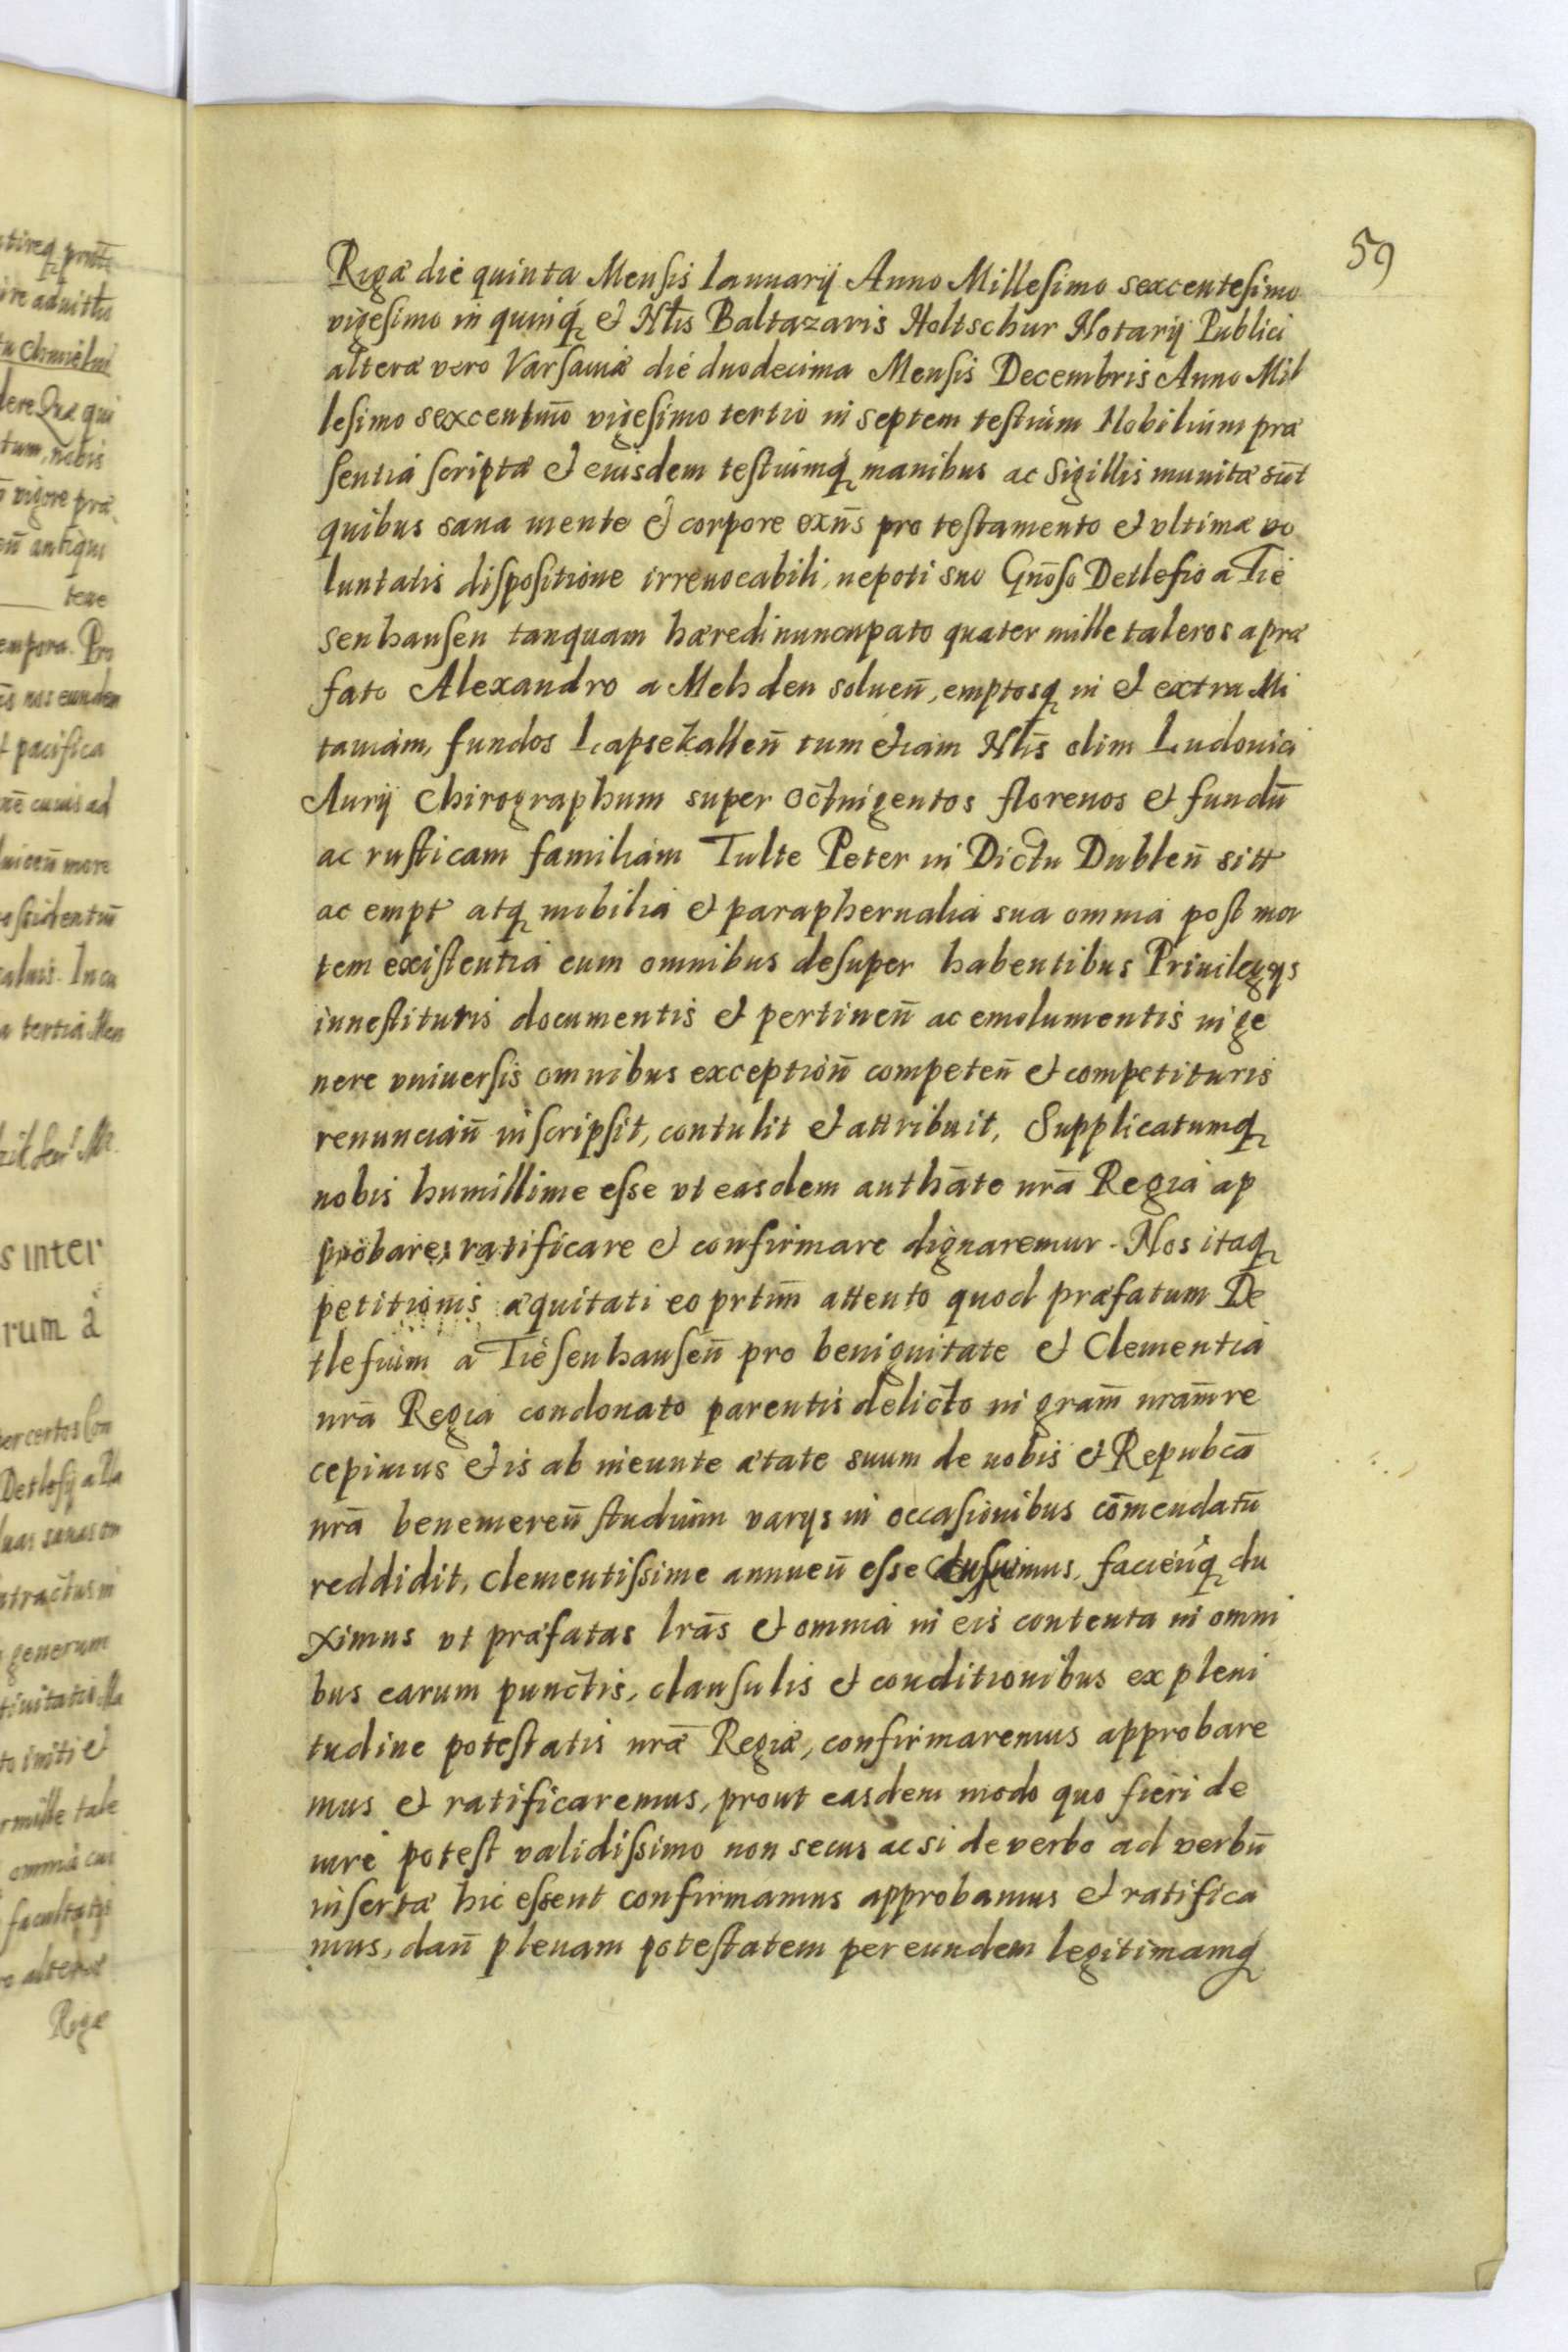 59
Rigæ die quinta Mensis Ianuarij Anno Millesimo sexcentesimo
vigesimo in quinq́ et Nłis Baltazaris Holtschur Notarij Publici
alteræ vero Varsaviæ die duodecima Mensis Decembris Anno Mil
lesimo sexcentm̃o vigesimo tertio in septem testium Nobilium præ
sentia scriptæ et eiusdem testiumq́ manibus ac Sigillis munitæ sūt
quibus sana mente et corpore exñs pro testamento et vltimæ vo
luntatis dispositione irreuocabili, nepoti suo Gñoso Detlefio a Tie
senhausen tanquam hæredi nuncupato quater mille taleros a præ
fato Alexandro a Mehden soluen̄, emptosq́ in et extra Mi
tauiam, fundos Lapsekallen̄ tum etiam Nłis olim Ludouici
Aurij Chirographum super octuigentos florenos et fundū
ac rusticam familiam Tulte Peter in Dictu Dublen̄ sitt
ac empt atq́ mobilia et paraphernalia sua omnia post mor
tem existentia cum omnibus desuper habentibus Priuilegijs
inuestituris documentis et pertinen̄ ac emolumentis in ge
nere vniuersis omnibus exception̄ competen̄ et competituris
renuncian̄ inscripsit, contulit et attribuit, Supplicatumq́
nobis humillime esse vt easdem authāte nr̃a Regia ap
probare, ratificare et confirmare dignaremur. Nos itaq́
petitionis æquitati eo prtim̃ attento quod præfatum De
tlefium a Tiesenhausen̄ pro benignitate et Clementia
nr̃a Regia condonato parentis delicto in gram̃ nram̃ re
cepimus et is ab ineunte ætate suum de nobis et Repubcā
nr̃a benemeren̄ studium varijs in occasionibus com̄endatū
reddidit, clementissime annuen̄ esse facien̄q́ du
ximus vt præfatas lrãs et omnia in eis contenta in omni
bus earum punctis, clausulis et conditionibus ex pleni
tudine potestatis nr̃æ Regiæ, confirmaremus approbare
mus et ratificaremus, prout easdem modo quo fieri de
iure potest validissimo non secus ac si de verbo ad verbū
insertæ hic essent confirmamus approbamus et ratifica
mus, dan̄ plenam potestatem per eundem legitimamq́